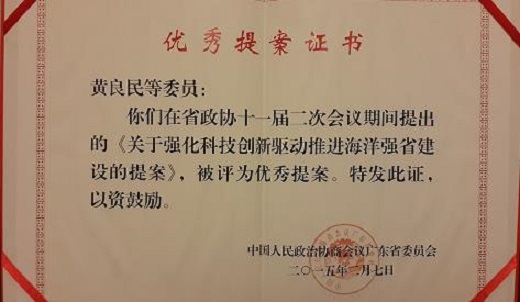 优秀提案证书
黄良民等委员：
你们在省政协十一届二次会议期间提出
的《关于强化科技创新驱动推进海洋强省建
设的提案》，被评为优秀提案。特发此证，
以资鼓励。
中国人民政治协商会议广东省委员会
二〇一五年二月七日